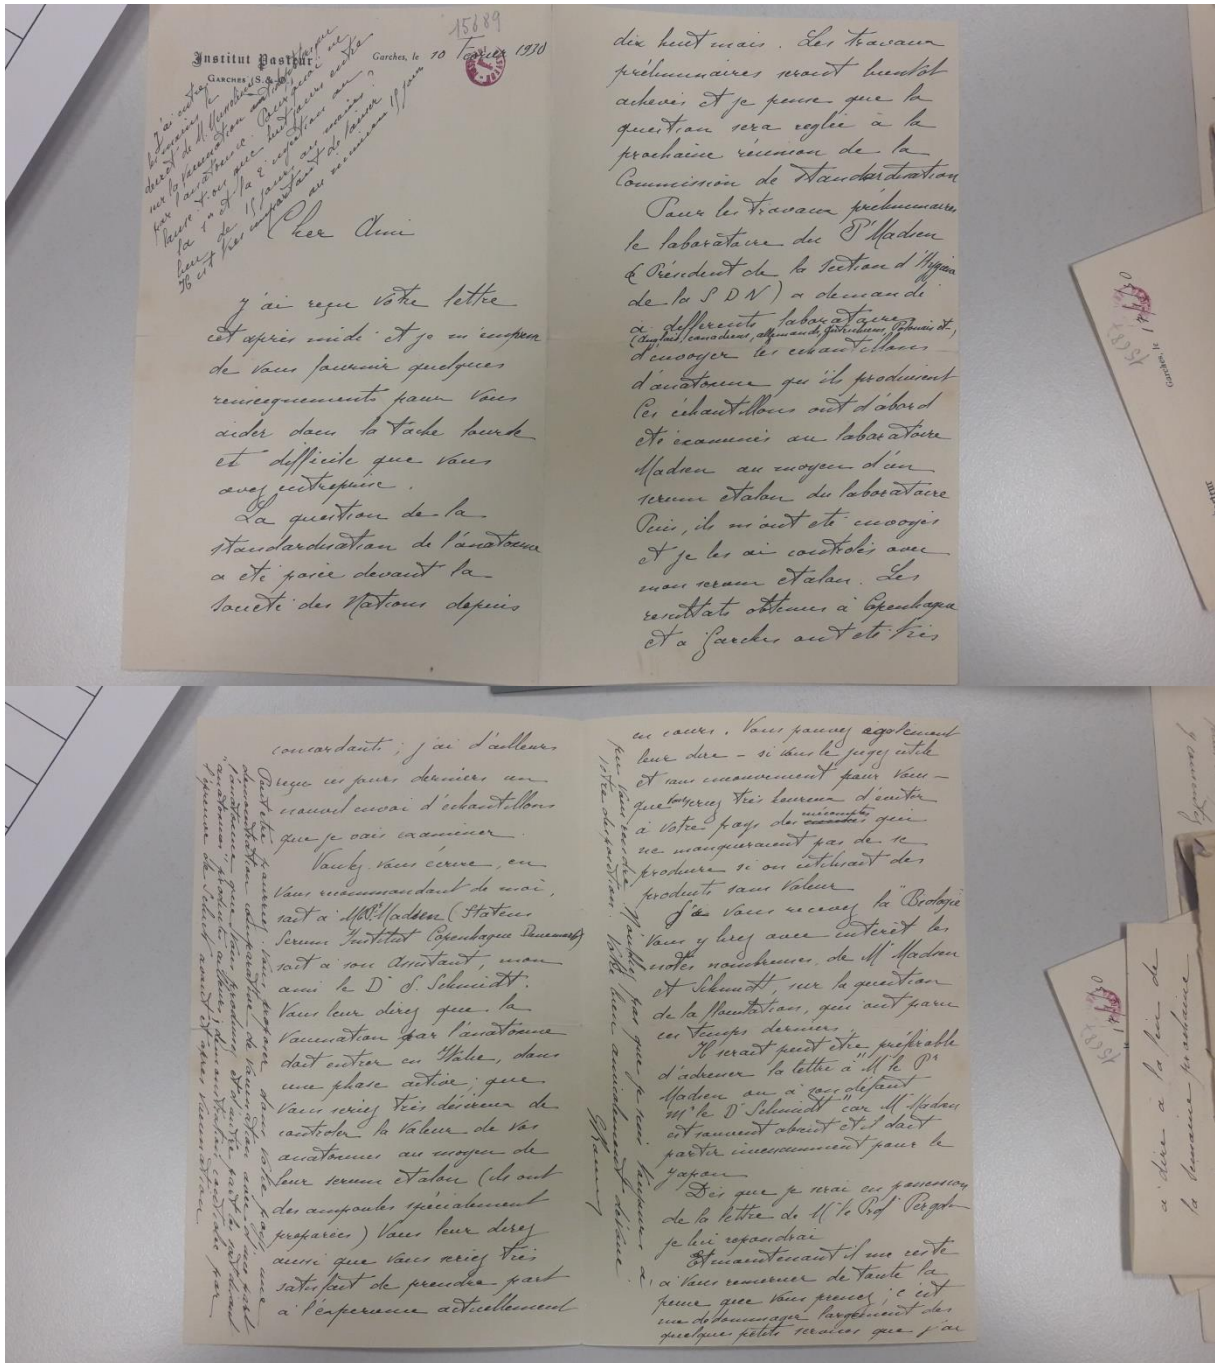 15689
Institut Pasteur
Garches, le 10 Février 1930
Garches (S.
J'ai entre
les mains le
décret de M. Mussolini
sur la vaccination antidiphtérique
par l'anatoxine. Pourquoi ne
laisse t-on que huit jours entre
la 1e et la 2e injection au
lieu de 15 jours au moins ?
Il est très important de laisser
au minimum 15 jours
Cher Ami
J'ai reçu votre lettre
cet après midi et je m'empresse
de vous fournir quelques
renseignements pour vous
aider dans la tache lourde
et difficile que vous
avez entreprise.
La question de la
standardisation de l'anatoxine
a été posée devant la
Société des Nations depuis
dix huit mois. Les travaux
préliminaires seront bientot
achevés et je pense que la
question sera reglée à la
prochaine réunion de la
Commission de Standardisation
Pour les travaux préliminaires
le laboratoire du Pr Madsen
(le Président de la Section d'Hygiène
de la S D N) a demandé
à differents laboratoires
(anglais, canadiens, allemands, autrichiens, Polonais etc.)
d'envoyer les echantillons
d'anatoxine qu'ils produisent
Ces échantillons ont d'abord
été examinés au laboratoire
Madsen au moyen d'un
serum etalon du laboratoire
Puis, ils m'ont été envoyés
et je les ai controlés avec
mon serum etalon. Les
resultats obtenus à Copenhague
et à Garches ont été très
concordants ; j'ai d'ailleurs
reçu ces jours derniers un
nouvel envoi d'échantillons
que je vais examiner.
Voulez vous écrire, en
vous recommandant de moi,
soit à Mr Pr Madsen (Statens
Serum Institut Copenhague Danemark)
soit à son Assistant, mon
ami le Dr S. Schmidt.
Vous leur direz que la
vaccination par l'anatoxine
doit entrer en Italie, dans
une phase active ; que
vous seriez très désireux de
controler la valeur de vos
anatoxines au moyen de
leur serum etalon (ils ont
des ampoules spécialement
preparées) Vous leur direz
aussi que vous seriez très
satisfait de prendre part
a l'expérience actuellement
Peut être pourrez vous proposer dans votre pays une
démonstration comparative de vaccination avec d'une part
l'anatoxine que vous produisez et d'autre part les soit disant
"anatoxines" produits ailleurs ; démonstration controlée par
l'épreuve de Schick avant et après vaccination
en cours. Vous pouvez également
leur dire – si vous le jugez utile
et sans inconvenient pour vous –
que vous seriez très heureux d'éviter
à votre pays des mécomptes qui
ne manqueraient pas de se
produire si on utilisait des
produits sans valeur
Si vous recevez la "Biologie
vous y lirez avec interêt les
notes nombreuses de Mr Madsen
et Schmidt, sur la question
de la floculation, qui ont paru
ces temps derniers.
Il serait peut être préférable
d'adresser la lettre à "M le Pr
Madsen ou à son défaut
Mr le Dr Schmidt" car Mr Madsen
est souvent absent et il doit
partir incessamment pour le
Japon
Dès que je serai en possession
de la lettre de Mr le Prof Pergola
je lui repondrai
Et maintenant il me reste
à vous remercier de toute la
peine que vous prenez ; c'est
me dédommager largement des
quelques petits services que j'ai
pu vous rendre. N'oubliez pas que je suis toujours à
votre disposition. Votre bien amicalement dévoué.
G Ramon
15689
17/2/30
Garches, le
a dire à la fin de
la semaine prochaine